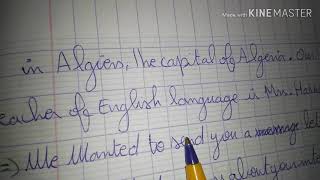 Made with KINEMASTER
in Algiers, the capital of Algeria. Our
eacher of English language is Mrs. Ha
=) We Wanted to send you a message be
s about your